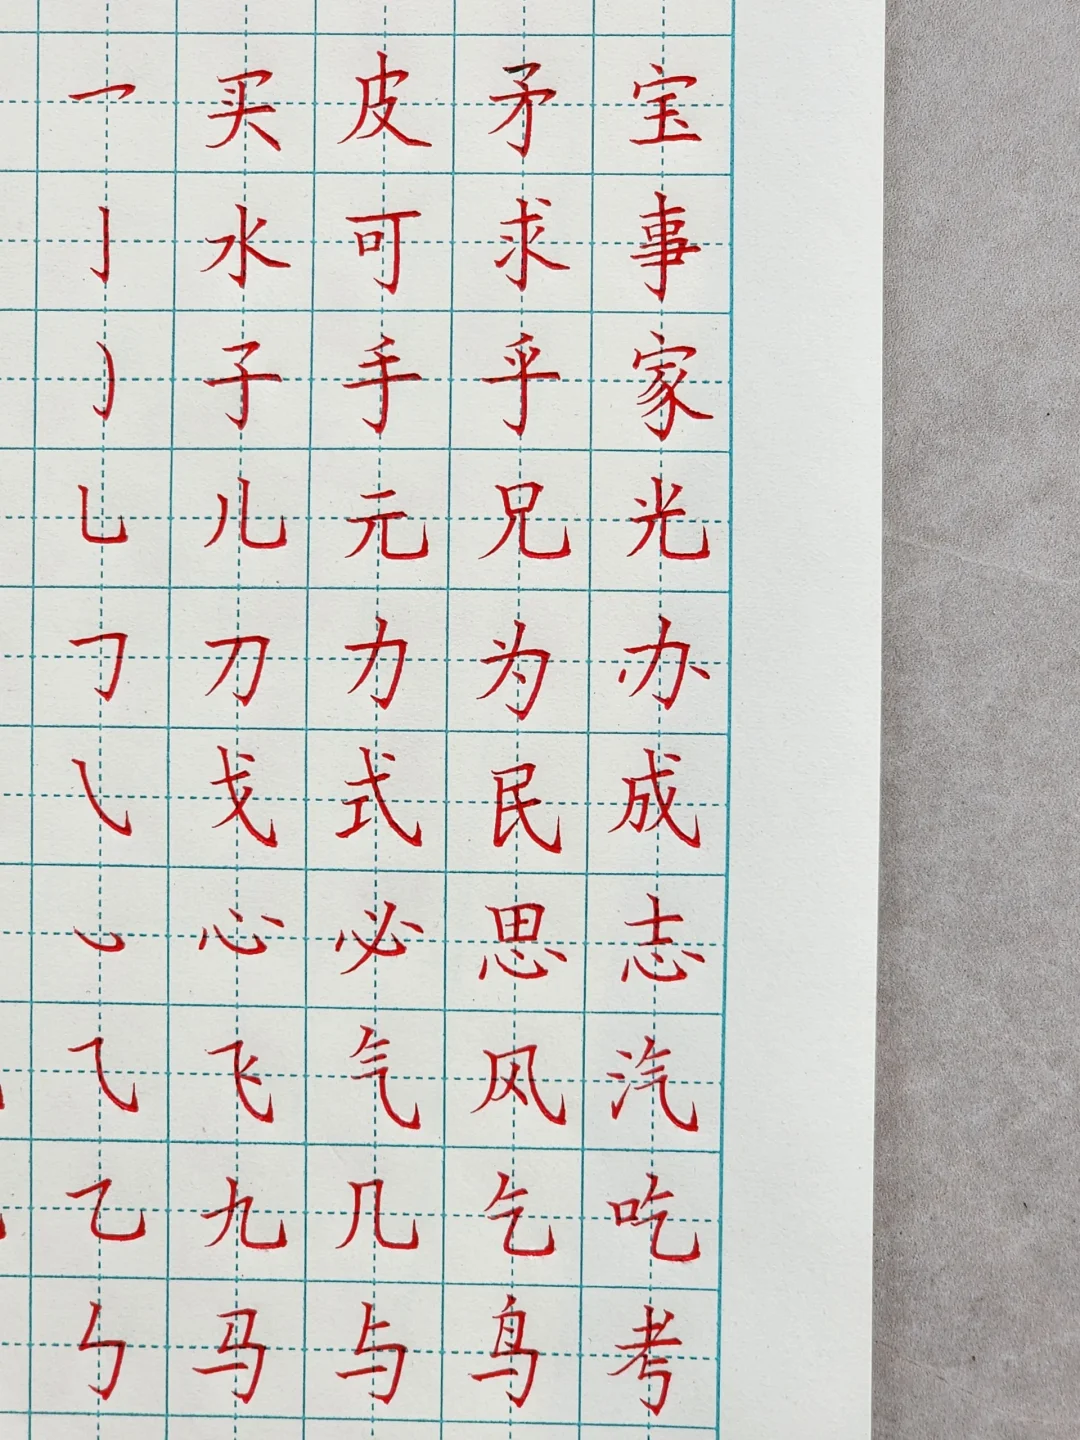 乛买皮矛宝
亅水可求事
㇁子手乎家
乚儿元兄光
𠃌刀力为办
㇂戈式民成
㇃心必思志
⺄飞气风汽
乙九几乞吃
㇉马与鸟考